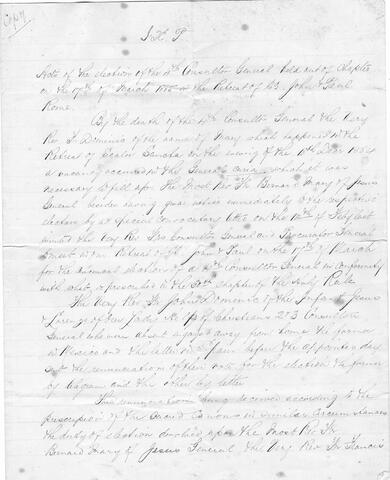 Copy
J. X. P
Note of the election of the 4th Consultor General held out of Chapter
on the 17th of March 1885 at the Retreat of SS. John & Paul
Rome.
By the death of the 4th Consultor General the Very
Rev. Fr. Dominic of the name of Mary which happened in the
Retreat of Scala Sancta on the evening of the 10th Dec 1884
a vacancy occurred in the General curia which it was
necessary to fill up. The Most Rev Fr Bernard Mary of Jesus
General besides having given notice immediately to the respective
electors by a special convocatory letter on the 12th of Feb last
invited the Very Rev. Frs Consultor General and Procurator General
to meet in our Retreat of SS. John & Paul on the 17th of March
for the election of a 4th Consultor General in conformity
with what is prescribed in the chapter of the Holy Rule
The Very Rev. Fr. John Dominic of the Infant Jesus
& Lorenzo of Help of Christians 2 & 3 Consultors
General who were absent away from home the former
in Mexico and the latter in Spain before the appointed day
sent the renunciation of their vote for the election the former
by telegram and the other by letter
This renunciation being received according to the
prescription of the Sacred Canons in similar circumstances
the duty of election devolved upon the Most Rev. Fr.
Bernard Mary of Jesus General the Very Rev Fr Francis